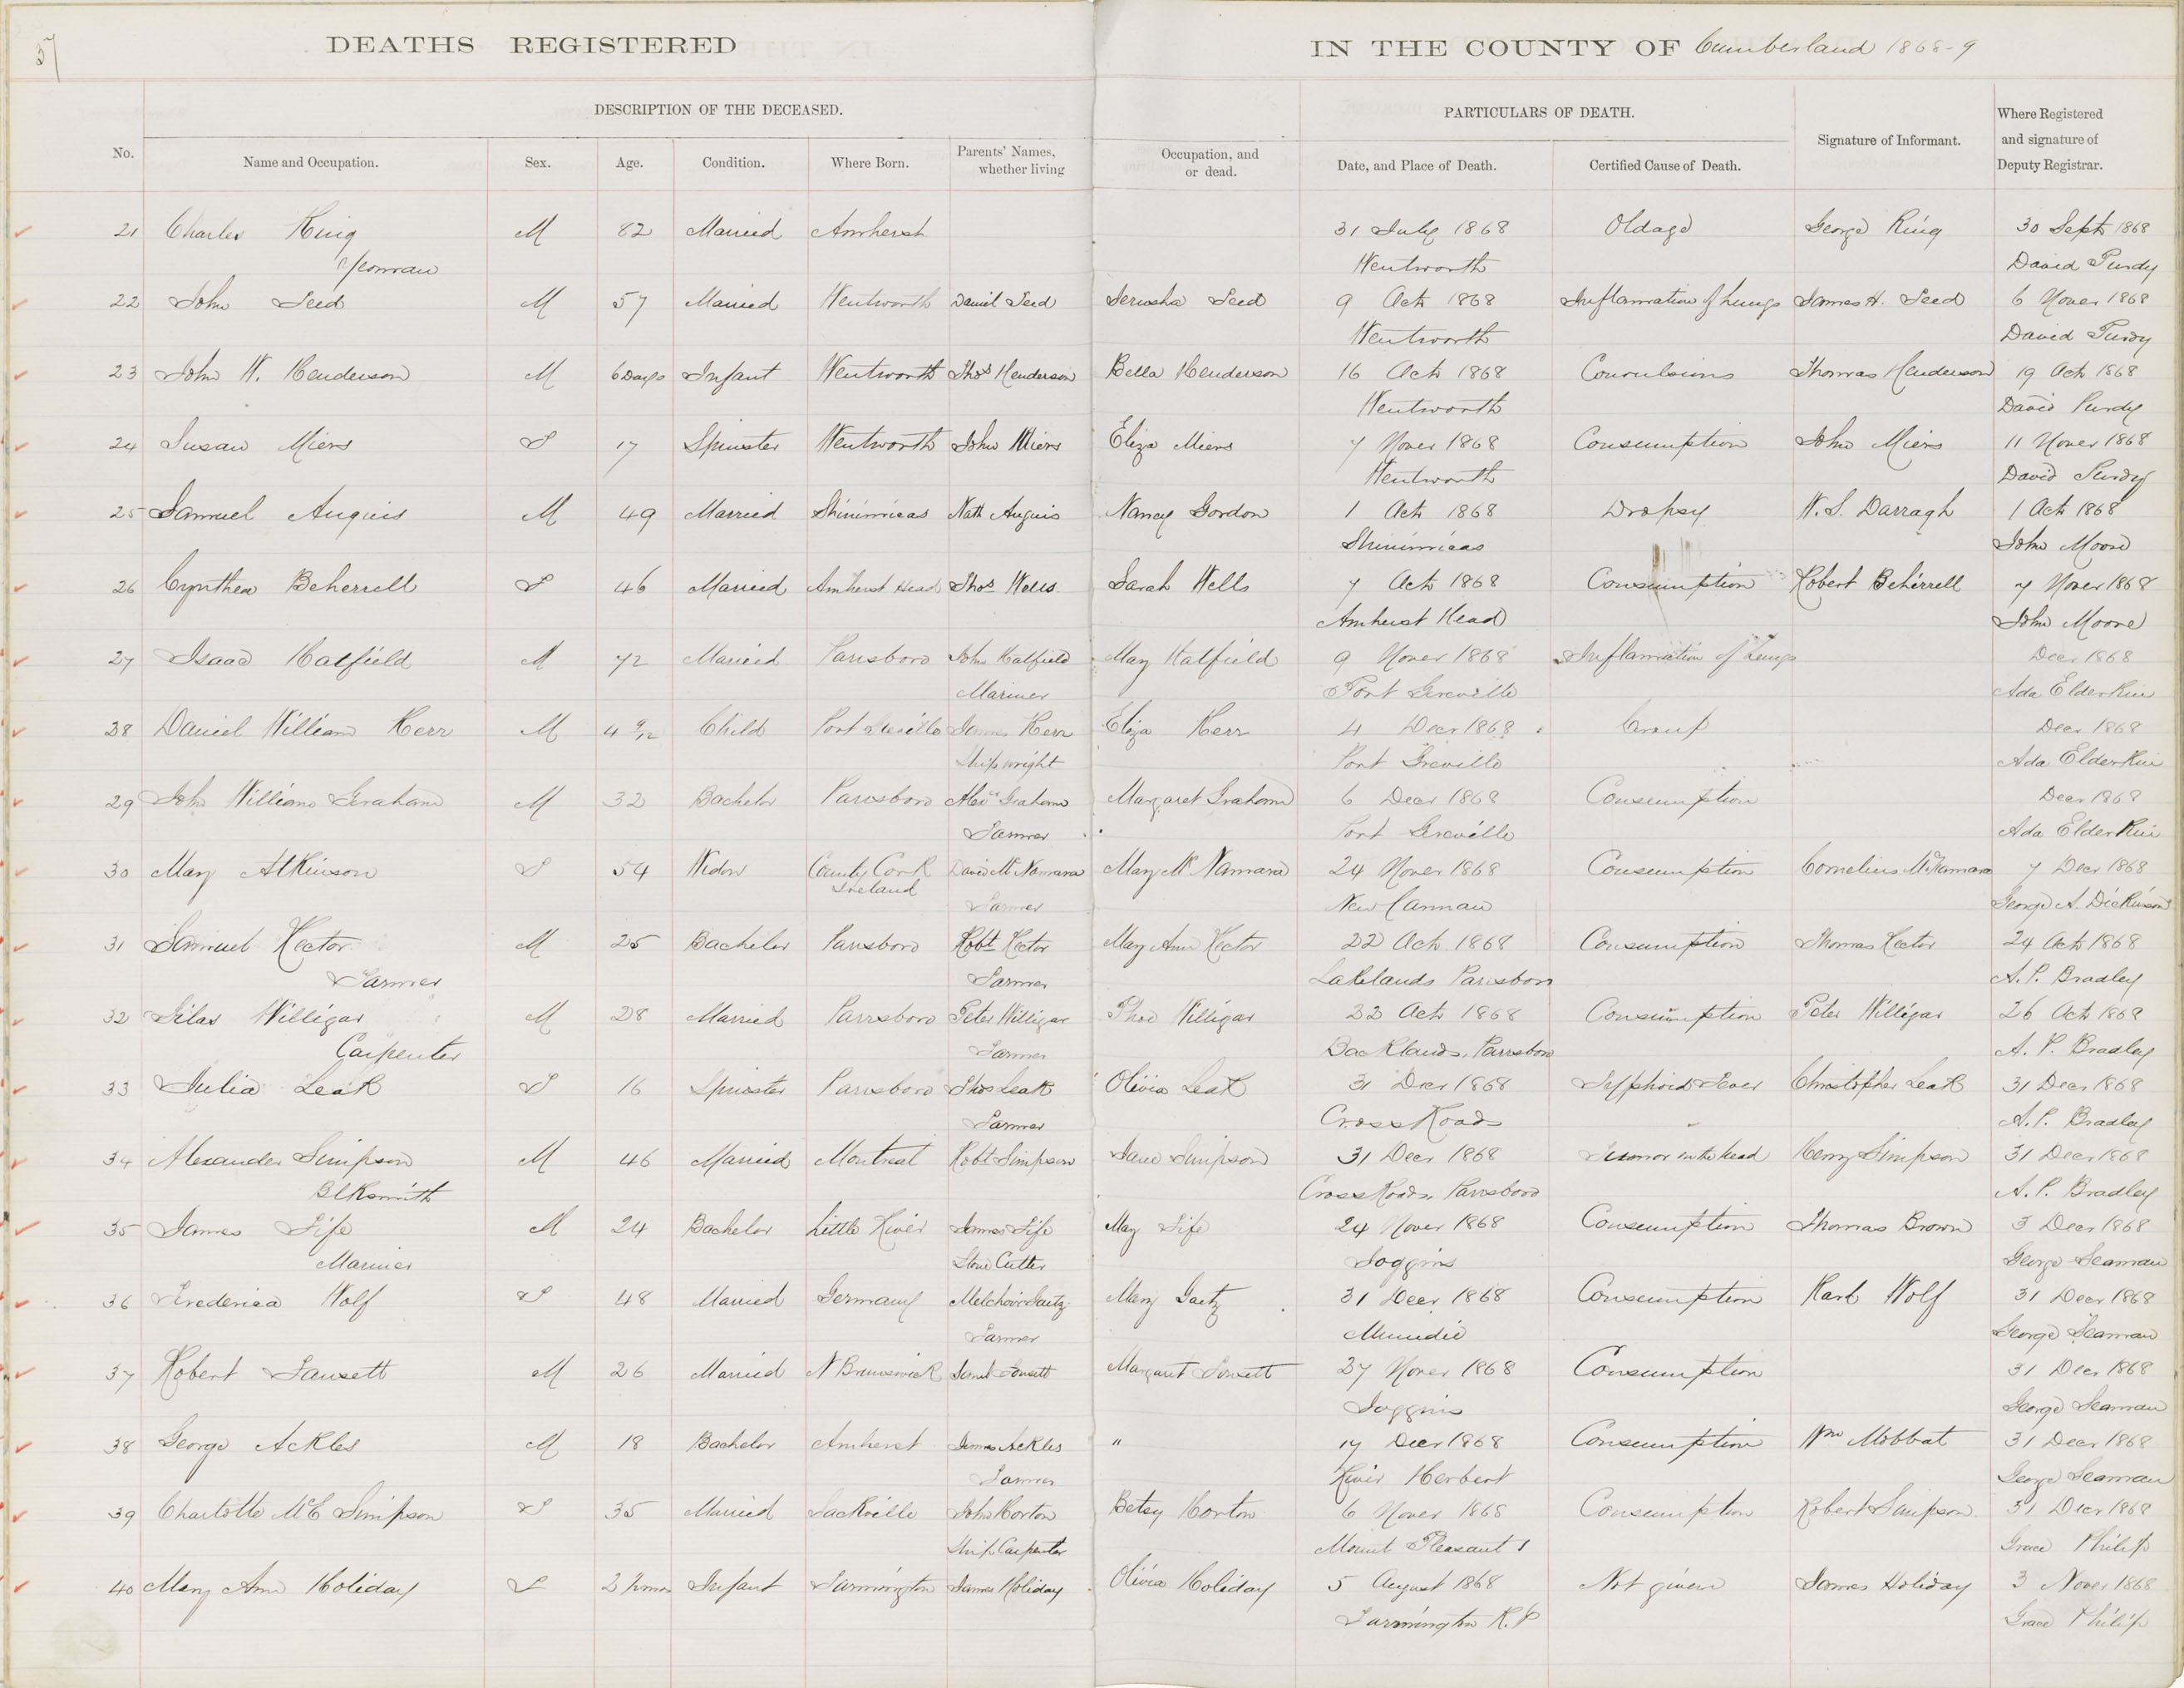 37
DEATHS REGISTERED IN THE COUNTY OF Cumberland 1868-9
DESCRIPTION OF THE DECEASED. PARTICULARS OF DEATH.
No. Name and Occupation. Sex. Age. Condition. Where Born. Parents' Names, whether living Occupation, and or dead. Date, and Place of Death. Certified Cause of Death. Signature of Informant. Where Registered and signature of Deputy Registrar.
21 Charles King M 82 Married Amherst 31 July 1868 Oldage George King 30 Sept 1868
Yeoman Wentworth David Purdy
22 John Seed M 57 Married Wentworth Daniel Seed Jerusha Seed 9 Oct 1868 Inflamation of Lungs James H. Seed 6 Novr 1868
Wentworth David Purdy
23 John W. Henderson M 6 Days Infant Wentworth Thos Henderson Bella Henderson 16 Oct 1868 Convulsions Thomas Henderson 19 Oct 1868
Wentworth David Purdy
24 Susan Miers F 17 Spinster Wentworth John Miers Eliza Miers 7 Novr 1868 Consumption John Miers 11 Novr 1868
Wentworth David Purdy
25 Samuel Angus M 49 Married Shinimicas Nath Angus Nancy Gordon 1 Oct 1868 Dropsy W. S. Darragh 1 Oct 1868
Shinimicas John Moore
26 Cynthea Beherrell F 46 Married Amherst Head Thos Wells Sarah Wells 7 Oct 1868 Consumption Robert Beherrell 7 Novr 1868
Amherst Head John Moore
27 Isaac Hatfield M 72 Married Parrsboro John Hatfield Mary Hatfield 9 Novr 1868 Inflamation of Lungs Decr 1868
Mariner Port Greville Ada Elderkin
28 Daniel William Kerr M 4 9/12 Child Port Greville James Kerr Eliza Kerr 4 Decr 1868 Croup Decr 1868
Shipwright Port Greville Ada Elderkin
29 John William Graham M 32 Bachelor Parrsboro Alexr Graham Margaret Graham 6 Decr 1868 Consumption Decr 1868
Farmer Port Greville Ada Elderkin
30 Mary Atkinson F 54 Widow County Cork Ireland David McNamara Mary McNamara 24 Novr 1868 Consumption Cornelius McNamara 7 Decr 1868
Farmer New Cannan George A. Dickinson
31 Samuel Hector M 25 Bachelor Parrsboro Robt Hector Mary Ann Hector 22 Oct 1868 Consumption Thomas Hector 24 Oct 1868
Farmer Farmer Lakelands Parrsboro A. P. Bradley
32 Silas Willigar M 28 Married Parrsboro Peter Willigar Phoe Willigar 22 Oct 1868 Consumption Peter Willigar 26 Oct 1868
Carpenter Farmer Backlands, Parrsboro A. P. Bradley
33 Julia Leak F 16 Spinster Parrsboro Thos Leak Olivia Leak 31 Decr 1868 Typhoid Fever Christopher Leak 31 Decr 1868
Farmer Cross Roads A. P. Bradley
34 Alexander Simpson M 46 Married Montreal Robt Simpson Jane Simpson 31 Decr 1868 Tumor in the head Henry Simpson 31 Decr 1868
Blksmith Cross Roads, Parrsboro A. P. Bradley
35 James Fife M 24 Bachelor Little River James Fife Mary Fife 24 Novr 1868 Consumption Thomas Brown 3 Decr 1868
Mariner Stone Cutter Joggins George Seaman
36 Frederica Wolf F 48 Married Germany Melchoir Gaetz Mary Gaetz 31 Decr 1868 Consumption Karl Wolf 31 Decr 1868
Farmer Minudie George Seaman
37 Robert Fawsett M 26 Married N Brunswick Margaret Fowsett 27 Novr 1868 Consumption 31 Decr 1868
Joggins George Seaman
38 George Ackles M 18 Bachelor Amherst James Ackles " 17 Decr 1868 Consumption Wm Mobbat 31 Decr 1868
Farmer River Herbert George Seaman
39 Charlotte McC Simpson F 35 Married Sackville John Horton Betsy Horton 6 Novr 1868 Consumption Robert Simpson 31 Decr 1868
Ship Carpenter Mount Pleasant Grace Philip
40 Mary Ann Holiday F Infant Farmington James Holiday Olivia Holiday 5 August 1868 Not given James Holiday 3 Novr 1868
Farmington R. P Grace Philip